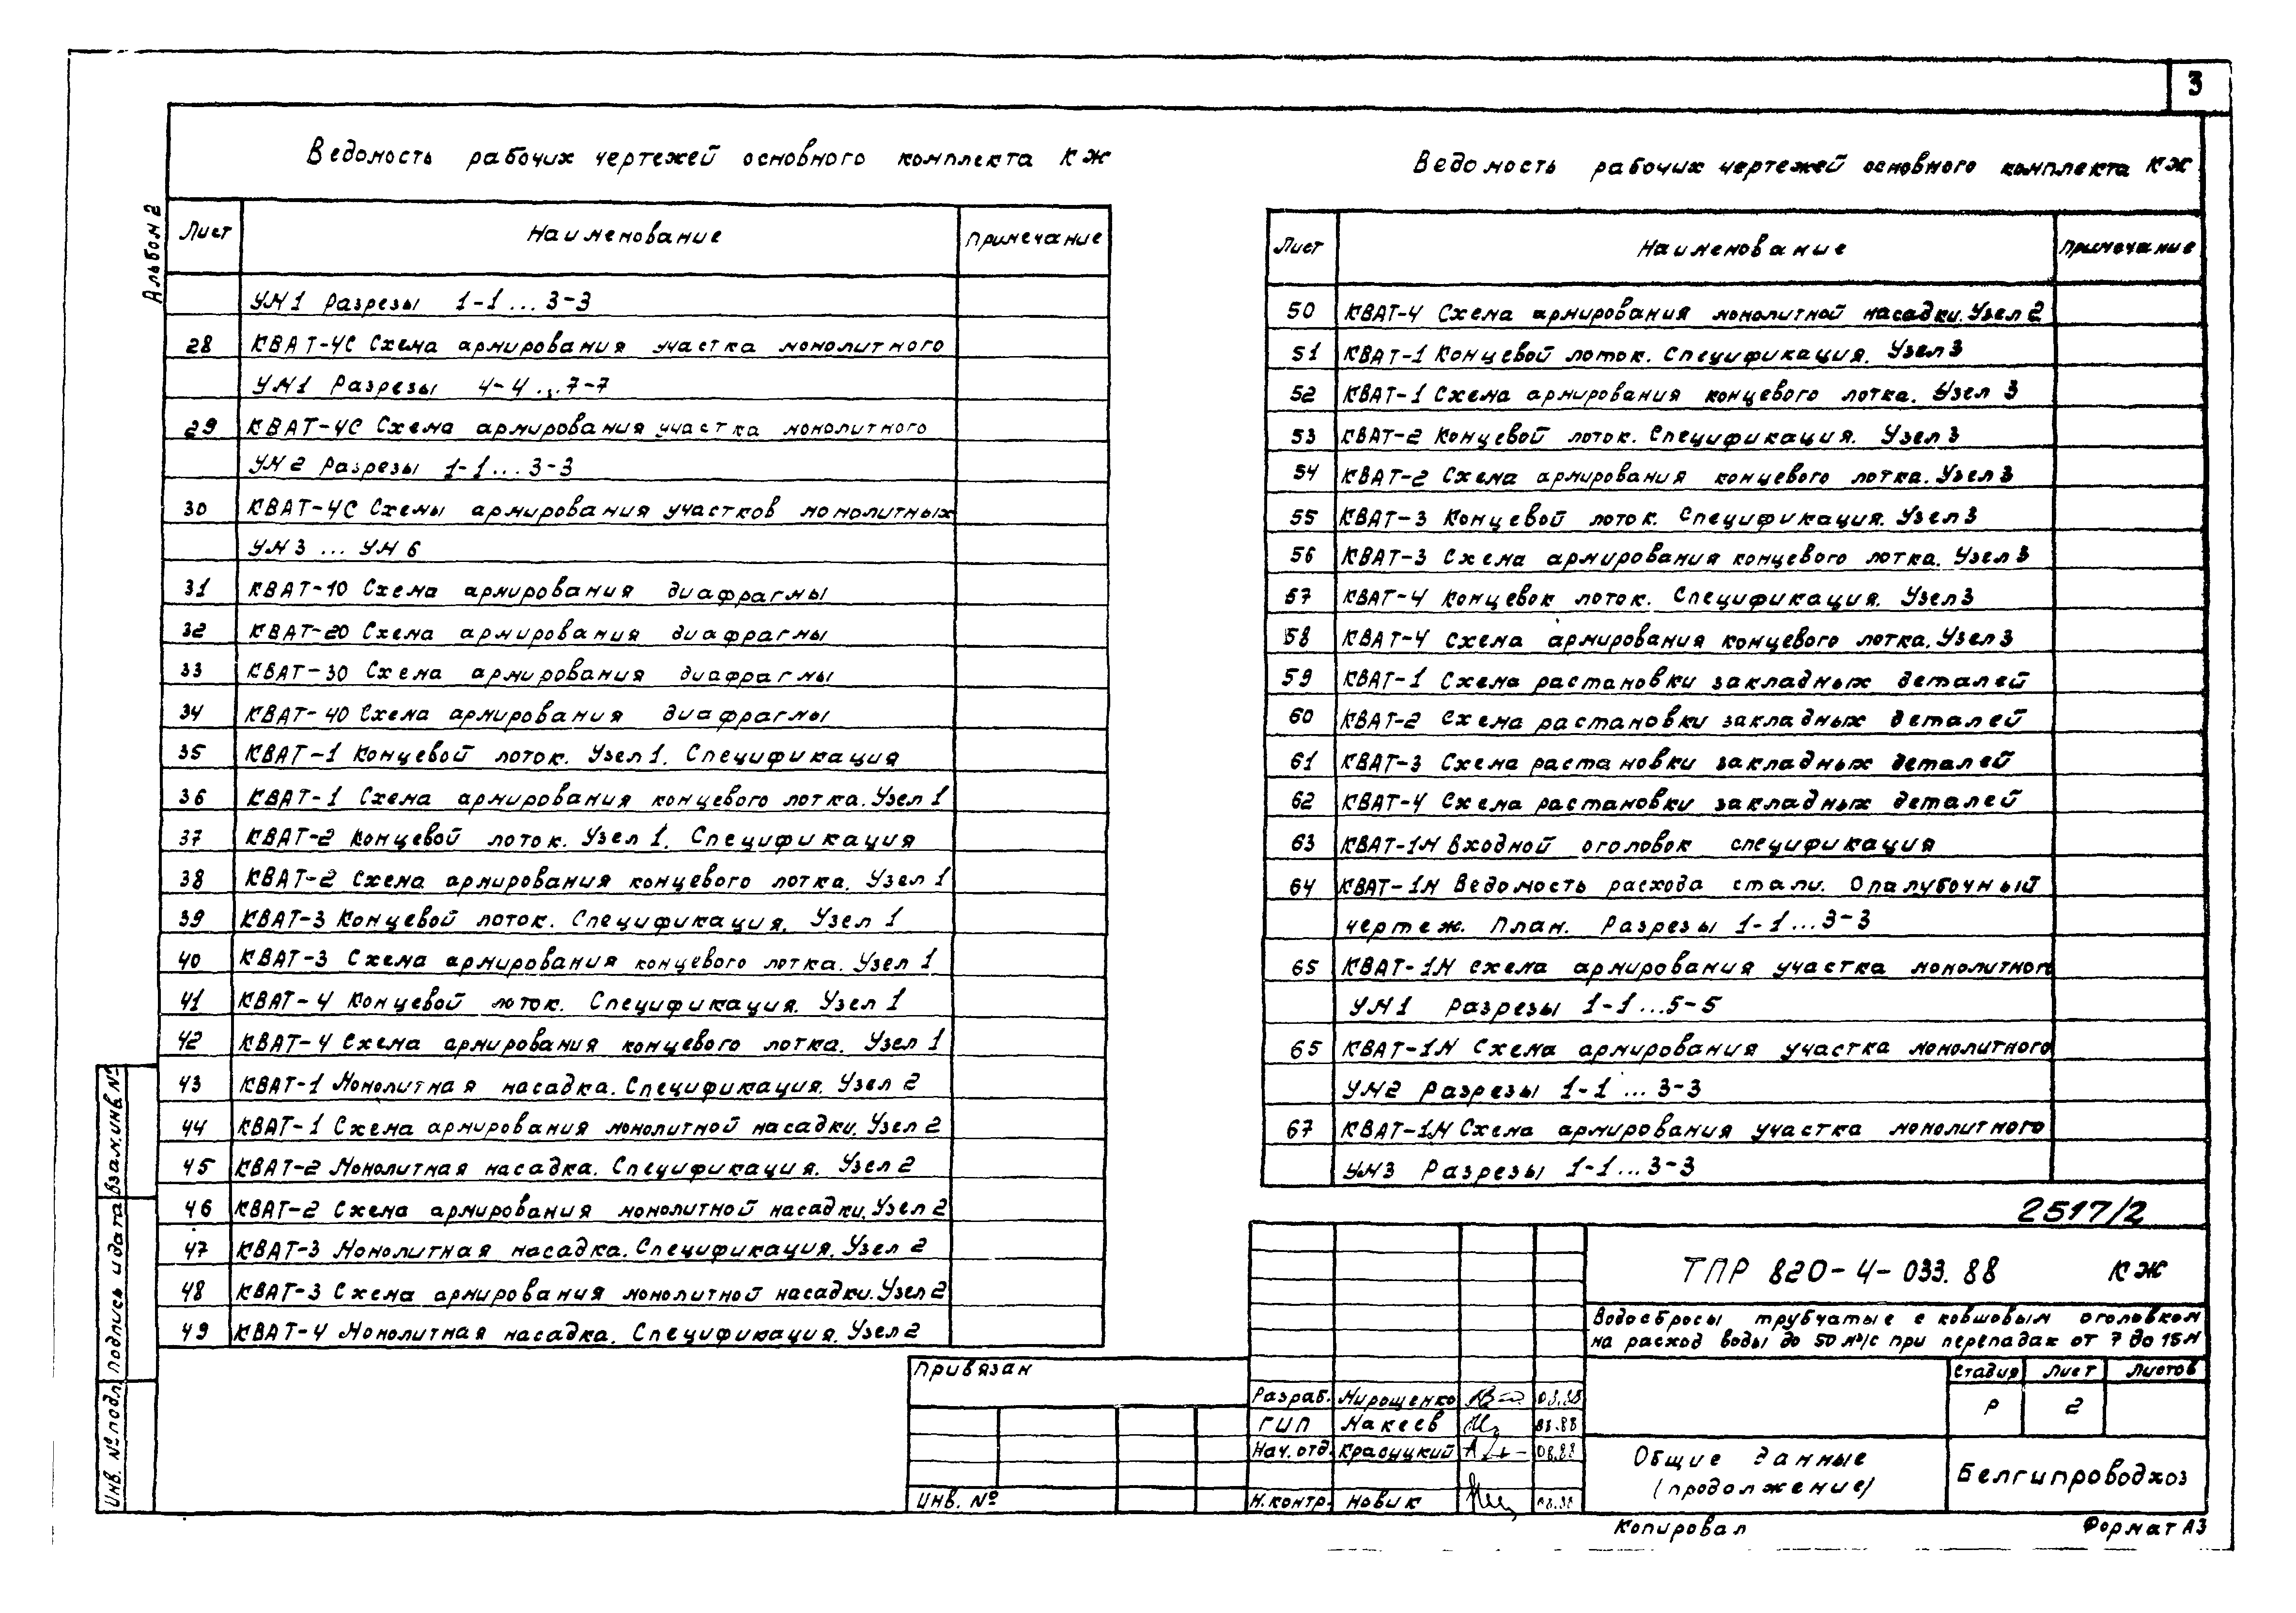 3
Альбом 2
Ведомость рабочих чертежей основного комплекта КЖ
Лист Наименование Примечание
УМ1 Разрезы 1-1 ... 3-3
28 КВАТ-4С Схема армирования участка монолитного
УМ1 Разрезы 4-4 ... 7-7
29 КВАТ-4С Схема армирования участка монолитного
УМ2 Разрезы 1-1 ... 3-3
30 КВАТ-4С Схемы армирования участков монолитных
УМ3 ... УМ6
31 КВАТ-10 Схема армирования диафрагмы
32 КВАТ-20 Схема армирования диафрагмы
33 КВАТ-30 Схема армирования диафрагмы
34 КВАТ-40 Схема армирования диафрагмы
35 КВАТ-1 Концевой лоток. Узел 1. Спецификация
36 КВАТ-1 Схема армирования концевого лотка. Узел 1
37 КВАТ-2 Концевой лоток. Узел 1. Спецификация
38 КВАТ-2 Схема армирования концевого лотка. Узел 1
39 КВАТ-3 Концевой лоток. Спецификация. Узел 1
40 КВАТ-3 Схема армирования концевого лотка. Узел 1
41 КВАТ-4 Концевой лоток. Спецификация. Узел 1
42 КВАТ-4 Схема армирования концевого лотка. Узел 1
43 КВАТ-1 Монолитная насадка. Спецификация. Узел 2
44 КВАТ-1 Схема армирования монолитной насадки. Узел 2
45 КВАТ-2 Монолитная насадка. Спецификация. Узел 2
46 КВАТ-2 Схема армирования монолитной насадки. Узел 2
47 КВАТ-3 Монолитная насадка. Спецификация. Узел 2
48 КВАТ-3 Схема армирования монолитной насадки. Узел 2
49 КВАТ-4 Монолитная насадка. Спецификация. Узел 2
Ведомость рабочих чертежей основного комплекта КЖ
Лист Наименование Примечание
50 КВАТ-4 Схема армирования монолитной насадки. Узел 2
51 КВАТ-1 Концевой лоток. Спецификация. Узел 3
52 КВАТ-1 Схема армирования концевого лотка. Узел 3
53 КВАТ-2 Концевой лоток. Спецификация. Узел 3
54 КВАТ-2 Схема армирования концевого лотка. Узел 3
55 КВАТ-3 Концевой лоток. Спецификация. Узел 3
56 КВАТ-3 Схема армирования концевого лотка. Узел 3
57 КВАТ-4 Концевок лоток. Спецификация. Узел 3
58 КВАТ-4 Схема армирования концевого лотка. Узел 3
59 КВАТ-1 Схема растановки закладных деталей
60 КВАТ-2 Схема растановки закладных деталей
61 КВАТ-3 Схема растановки закладных деталей
62 КВАТ-4 Схема растановки закладных деталей
63 КВАТ-1М Входной оголовок спецификация
64 КВАТ-1М Ведомость расхода стали. Опалубочный
чертеж. План. Разрезы 1-1 ... 3-3
65 КВАТ-1М Схема армирования участка монолитного
УМ1 Разрезы 1-1 ... 5-5
65 КВАТ-1М Схема армирования участка монолитного
УМ2 Разрезы 1-1 ... 3-3
67 КВАТ-1М Схема армирования участка монолитного
УМ3 Разрезы 1-1 ... 3-3
2517/2
ТПР 820-4-033.88 КЖ
Водосбросы трубчатые с ковшовым оголовком
на расход воды до 50 м³/с при перепадах от 7 до 15м
Стадия Лист Листов
Р 2
Общие данные
(продолжение)
Белгипроводхоз
Привязан
Инв. №
Разраб. Мирощенко 03.88
ГИП Макеев 08.88
Нач. отд. Красуцкий 08.88
Н. контр. Новик 08.88
Взам. инв. №
Подпись и дата
Инв. № подл.
Копировал Формат А3